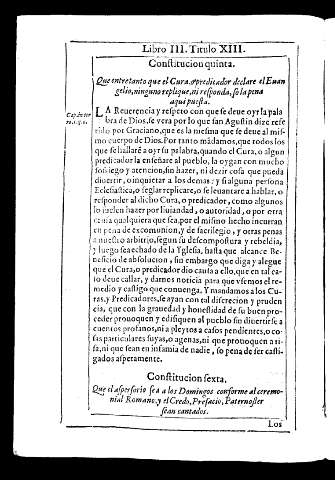 Libro III. Titulo XIII.
Constitucion quinta.
Que entretanto que el Cura, o predicador declare el Euan
gelio, ninguno replique, ni responda, so la pena
aqui puesta.
LA Reuerencia y respeto con que se deue oyr la pala
bra de Dios, se vera por lo que san Agustin dize refe
rido por Graciano, que es la mesma que se deue al mis
mo cuerpo de Dios. Por tanto mãdamos, que todos los
que se hallarē a oyr su palabra, quando el Cura, o algun
predicador la enseñare al pueblo, la oygan con mucho
sosiego y atencion, sin hazer, ni dezir cosa que pueda
diuertir, o inquietar a los demas: y si alguna persona
Eclesiastica, o seglar replicare, o se leuantare a hablar, o
responder al dicho Cura, o predicador, como algunos
lo suelen hazer por liuiandad, o autoridad, o por otra
causa qualquiera que sea, por el mismo hecho incurran
en pena de excomunion, y de sacrilegio, y otras penas
a nuestro arbitrio, segun su descompostura y rebeldia,
y luego sea echado de la Yglesia, hasta que alcance Be-
neficio de absolucion, sin embargo que diga y alegue
que el Cura, o predicador dio causa a ello, que en tal ca-
so deue callar, y darnos noticia para que vsemos el re-
medio y castigo que conuenga. Y mandamos a los Cu-
ras, y Predicadores, se ayan con tal discrecion y pruden
cia, que con la grauedad y honestidad de su buen pro-
ceder prouoquen y edifiquen al pueblo sin diuertirse a
cuentos profanos, ni a pleytos a casos pendientes, o co-
sas particulares suyas, o agenas, ni que prouoquen a ri-
sa, ni que sean en infamia de nadie, so pena de ser casti-
gados asperamente.
Constitucion sexta.
Que el aspersorio sea a los Domingos conforme al ceremo-
nial Romano, y el Credo, Prefacio, Paternoster
sean cantados.
Los